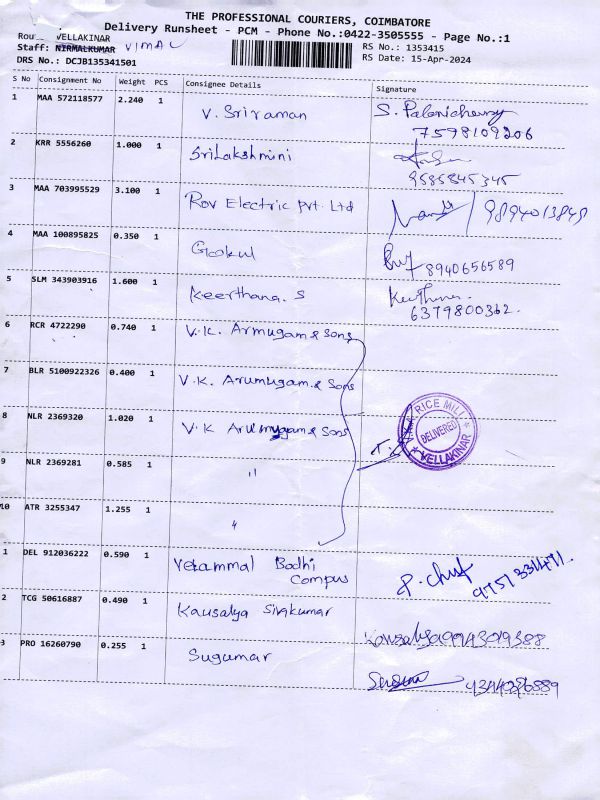 THE PROFESSIONAL COURIERS, COIMBATORE
Delivery Runsheet - PCM - Phone No.:0422-3505555 - Page No.:1
VELLAKINAR
Staff: NIRMALKUMAR VIMAL
RS No.: 1353415
DRS No.: DCJB135341501
RS Date: 15-Apr-2024
S No Consignment No Weight PCS Consignee Details Signature
1 MAA 572118577 2.240 1 V. Sriraman S. Palanichamy
7598109206
2 KRR 5556260 1.000 1 SriLakshmini
9585845345
3 MAA 703995529 3.100 1 Rov Electric Pvt. Ltd 9894013848
4 MAA 100895825 0.350 1 Gokul
8940656589
5 SLM 343903916 1.600 1 Keerthana. S Keerthana.
6379800362.
6 RCR 4722290 0.740 1 V.K. Armugam & Sons
7 BLR 5100922326 0.400 1 V.K. Arumugam & Sons
8 NLR 2369320 1.020 1 V.K Arumugam & Sons
RICE MILL
DELIVERED
VELLAKINAR
9 NLR 2369281 0.585 1 "
10 ATR 3255347 1.255 1 "
1 DEL 912036222 0.590 1 Vetammal Bodhi
Compus
2 TCG 50616887 0.490 1 Kausalya Sivakumar
Kausalya 9943019388
3 PRO 16260790 0.255 1 Sugumar